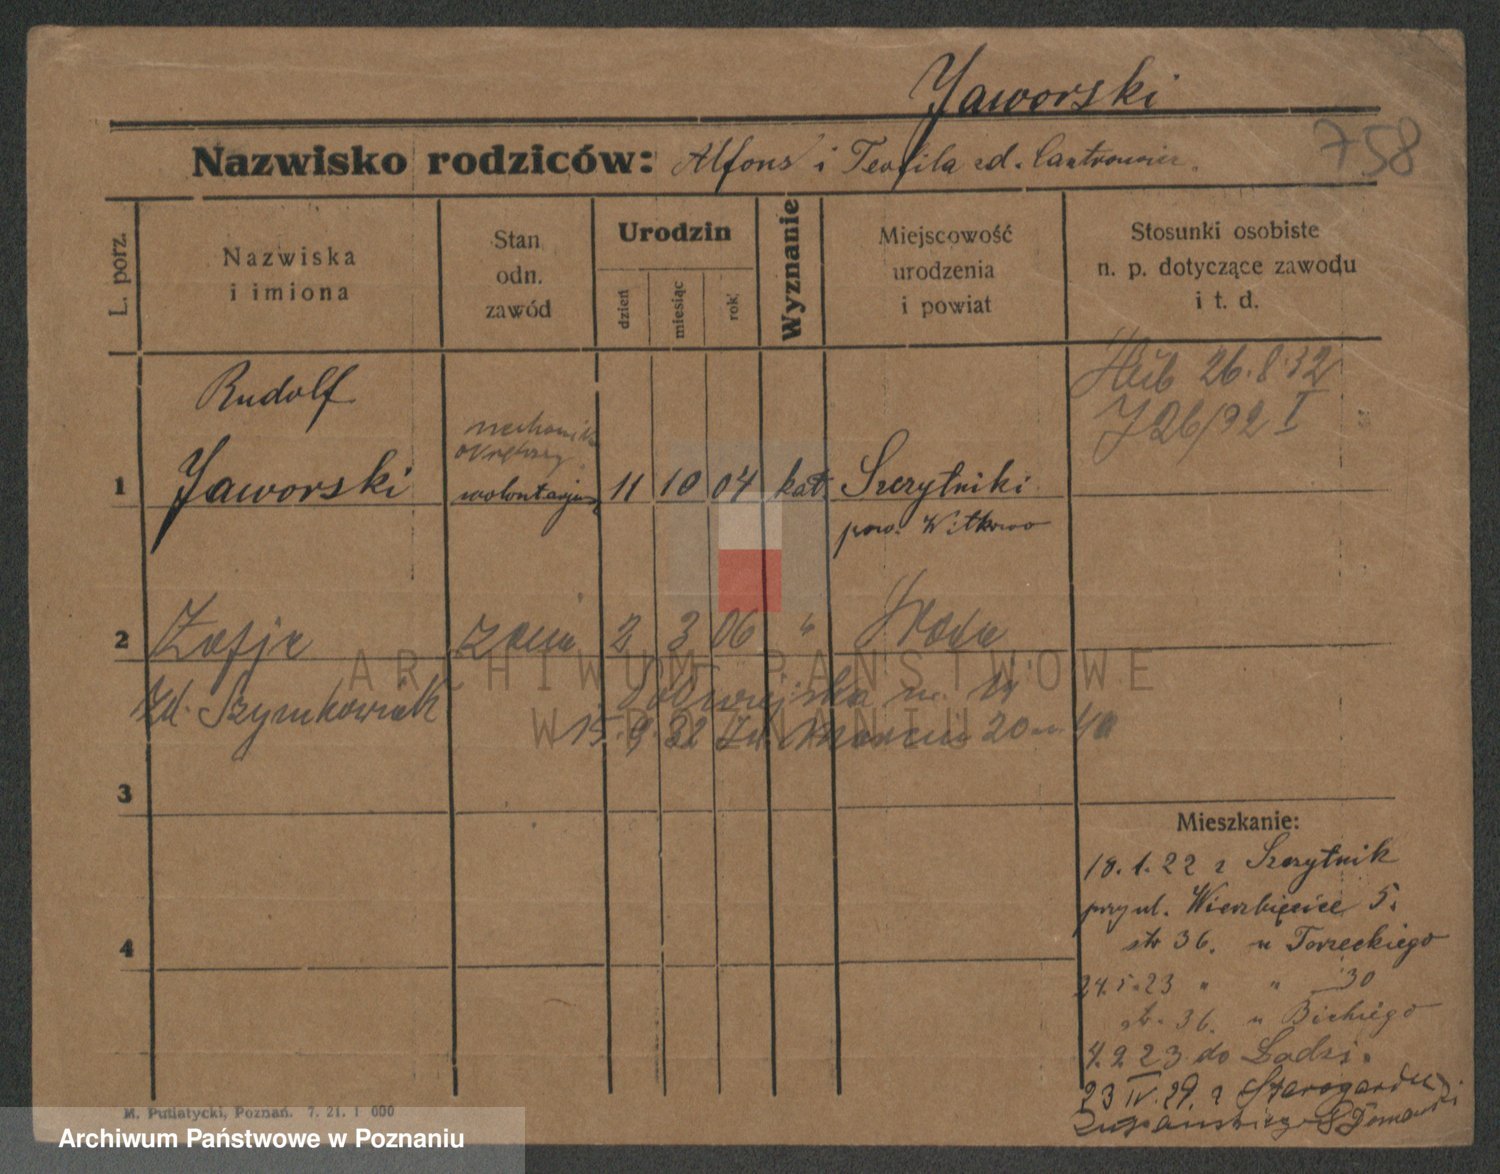 Jaworski
Nazwisko rodziców: Alfons i Teofila zd.
758
L. porz.
Nazwiska
i imiona
Stan
odn.
zawód
Urodzin
dzień
miesiąc
rok
Wyznanie
Miejscowość
urodzenia
i powiat
Stosunki osobiste
n. p. dotyczące zawodu
i t. d.
26.8.32
J 26/92 I
Rudolf
1 Jaworski 11 10 04 kat Szczytniki
pow. Witkowo
2 Zofja żona 2 3 06 "
zd. Szymkowiak
15.9.32 20 m. 40
ARCHIWUM PAŃSTWOWE
W POZNANIU
3
4
Mieszkanie:
18.1.22 z Szczytnik
przy ul. Wierzbięcice 5.
str 36. u Torzeckiego
24.5.23 " " 30
str. 36. u
4.9.23 do Łodzi.
23 IV. 29. z Starogardu
M. Putiatycki, Poznań. 7. 21. 1 000
Archiwum Państwowe w Poznaniu